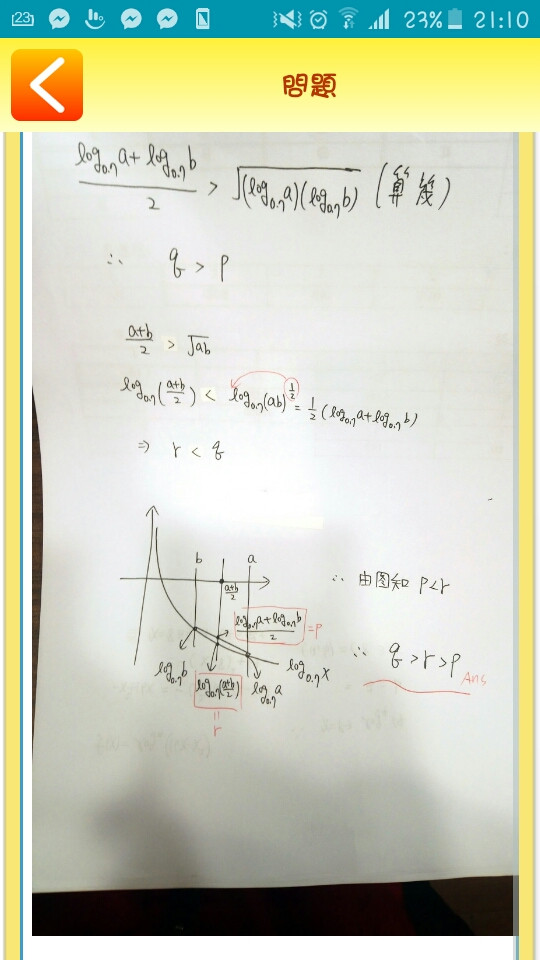 23 23% 21:10
問題
(log₀.₇a + log₀.₇b)/2 > √((log₀.₇a)(log₀.₇b)) (算幾)
∴ q > p
(a+b)/2 > √ab
log₀.₇((a+b)/2) < log₀.₇(ab)^(1/2) = 1/2 (log₀.₇a + log₀.₇b)
⇒ r < q
b a
(a+b)/2
∴ 由图知 p<r
(log₀.₇a + log₀.₇b)/2 = p
∴ q > r > p Ans
log₀.₇b log₀.₇((a+b)/2) log₀.₇a log₀.₇x
= r